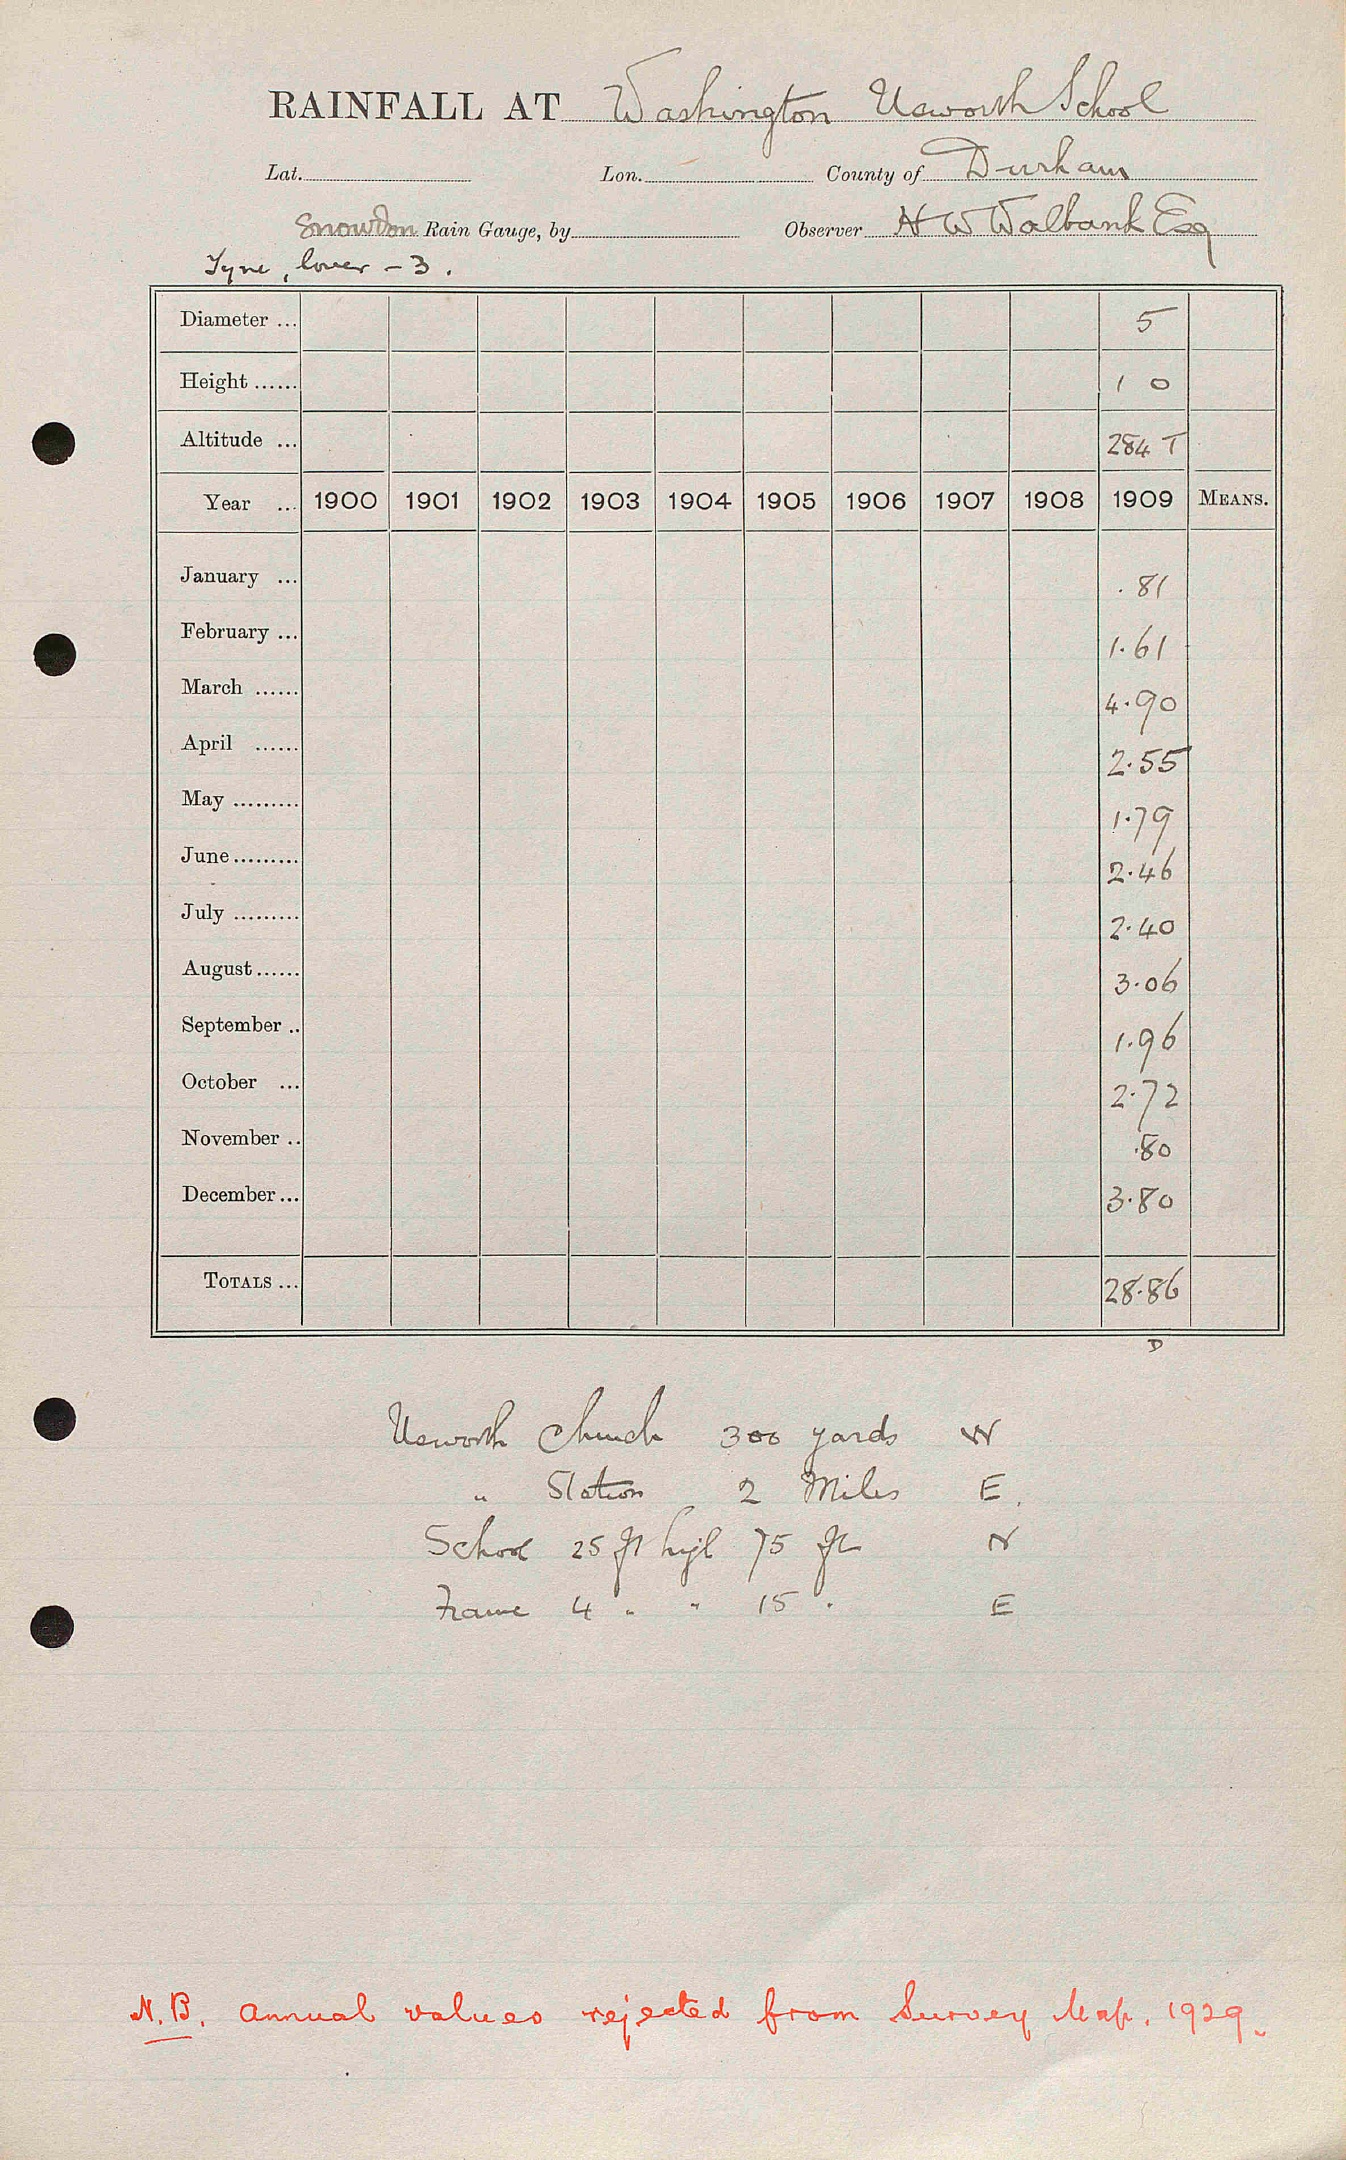 RAINFALL AT Washington Usworth School
Lat. Lon. County of Durham
Snowdon Rain Gauge, by Observer H W Walbank Esq
Tyne, lower - 3.
Diameter ... 5
Height ...... 1 0
Altitude ... 284 T
Year ... 1900 1901 1902 1903 1904 1905 1906 1907 1908 1909 MEANS.
January ... .81
February ... 1.61
March ...... 4.90
April ...... 2.55
May ......... 1.79
June......... 2.46
July ......... 2.40
August...... 3.06
September .. 1.96
October ... 2.72
November .. .80
December... 3.80
TOTALS ... 28.86
D
Usworth Church 300 yards W
" Station 2 Miles E.
School 25 ft high 75 ft N
Frame 4 " " 15 " E
N.B. Annual values rejected from Survey Map. 1929.